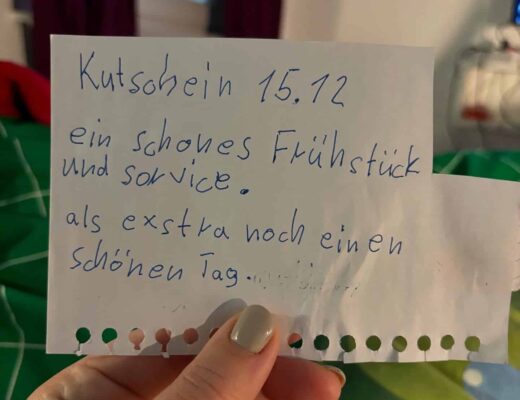 Kutschein 15.12
ein schones Frühstück
und sorvice.
als exstra noch einen
schönen Tag.